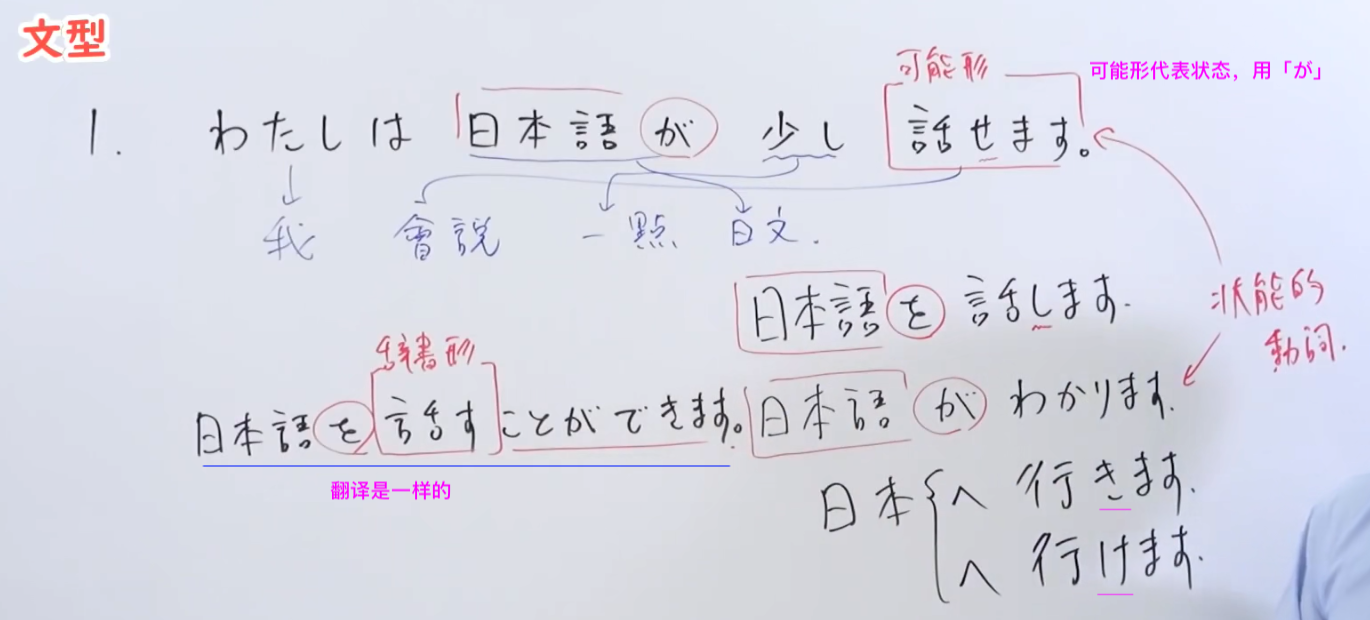 文型
可能形
可能形代表状态，用「が」
1. わたしは 日本語が 少し 話せます。
我 會説 一點 日文.
日本語を 話します.
状態的
動詞.
辞書形
日本語を話すことができます。
日本語が わかります.
翻译是一样的
日本 へ 行きます.
へ 行けます.